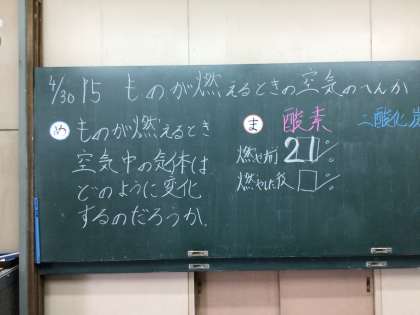 4/30 15 ものが燃えるときの空気のへんか
め ものが燃えるとき
空気中の気体は
どのように変化
するのだろうか。
ま 酸素 二酸化炭
燃やす前 21%
燃やした後 □%